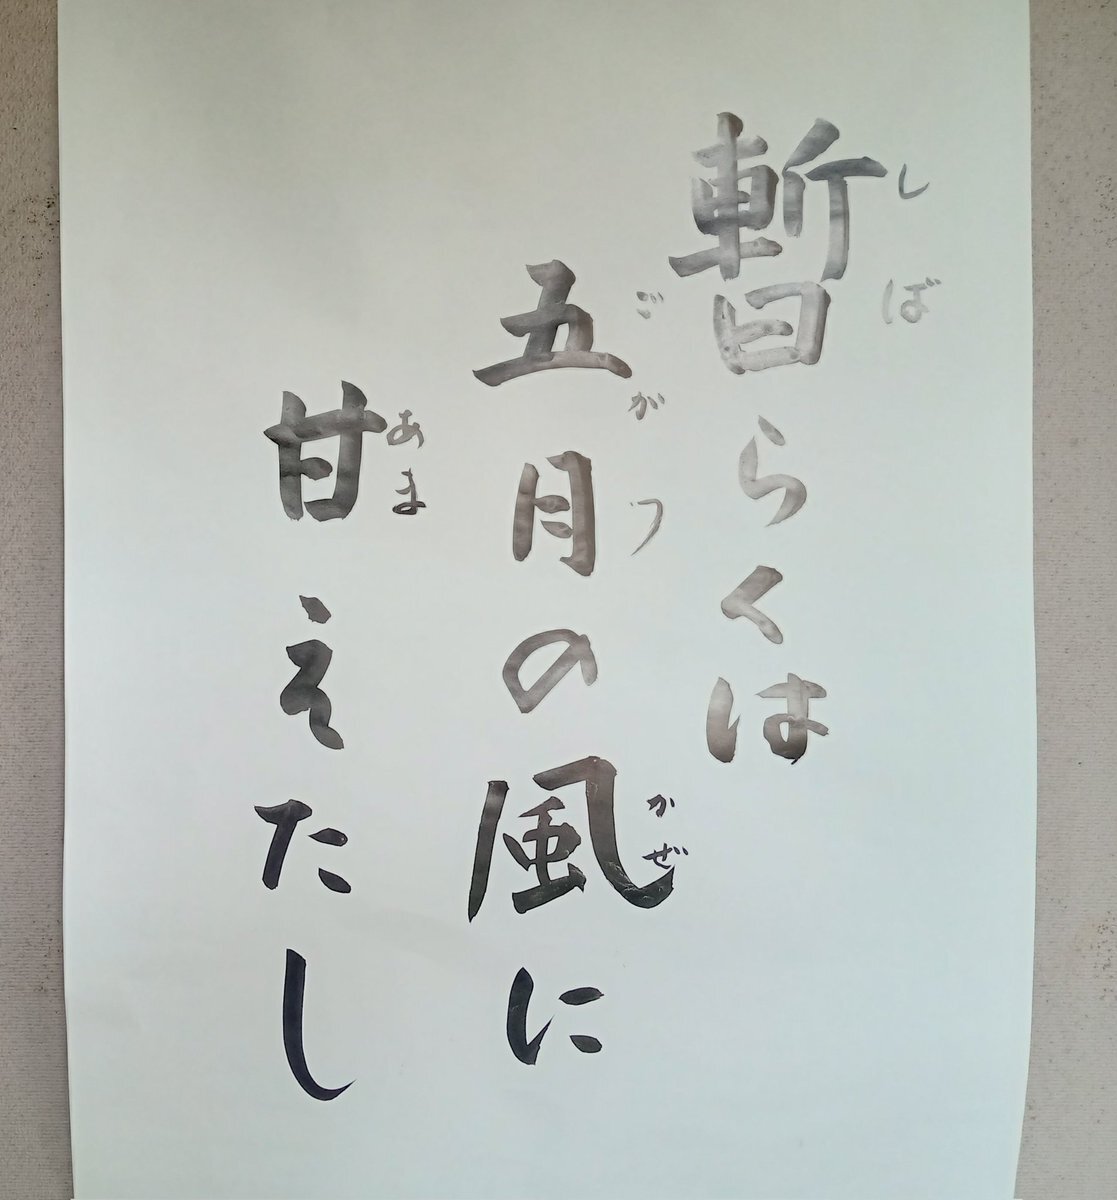 しば
暫らくは
ごがつ かぜ
五月の風に
あま
甘えたし